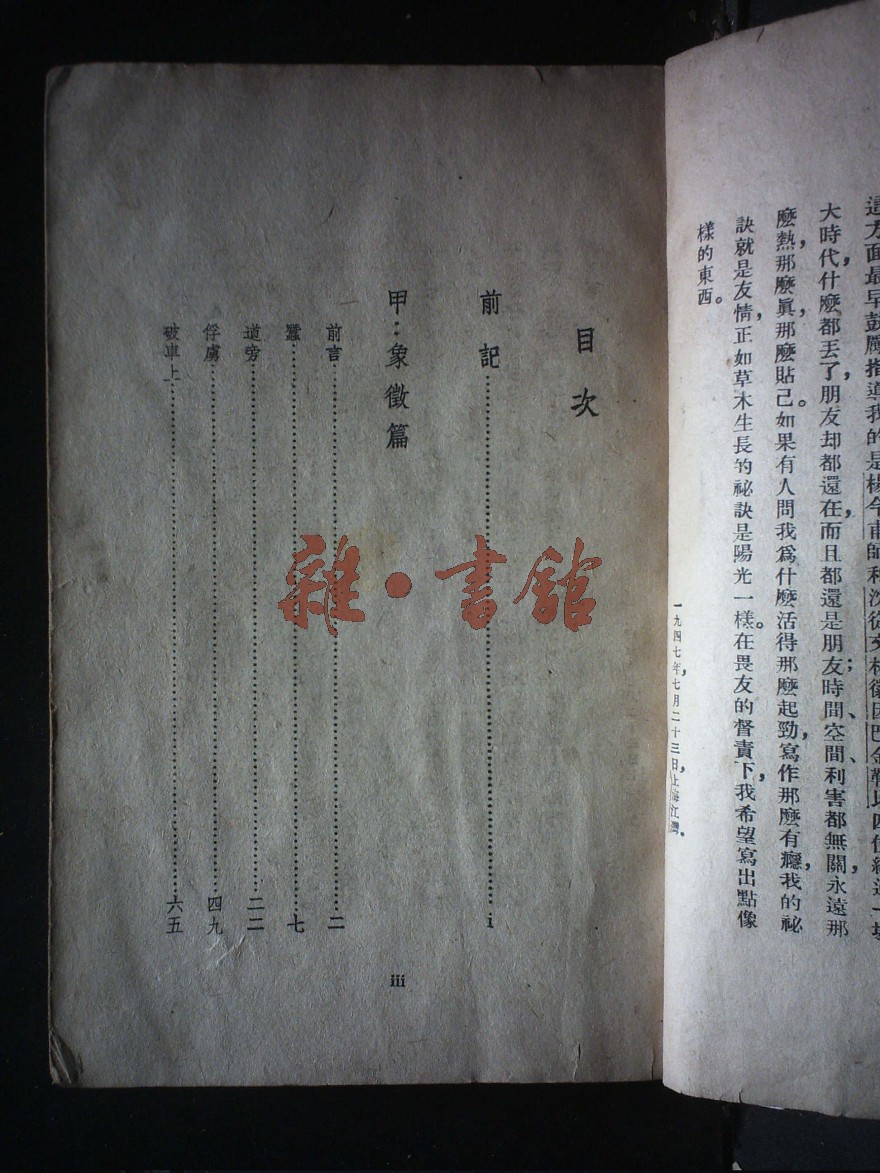 這方面最早鼓勵指導我的是楊今甫師和沈從文林徽因巴金靳以四位經這一場
大時代，什麼都丟了，朋友却都還在，而且都還是朋友；時間、空間、利害都無關，永遠那
麼熱，那麼眞，那麼貼己。如果有人問我爲什麼活得那麼起勁，寫作那麼有癮，我的祕
訣就是友情，正如草木生長的祕訣是陽光一樣。在畏友的督責下，我希望寫出點像
樣的東西。
一九四七年，七月二十三日，上海江灣。
目次
前記……i
甲：象徵篇
前言……二
蠶……七
道旁……二二
俘虜……四九
破車上……六五
iii
雜·書館